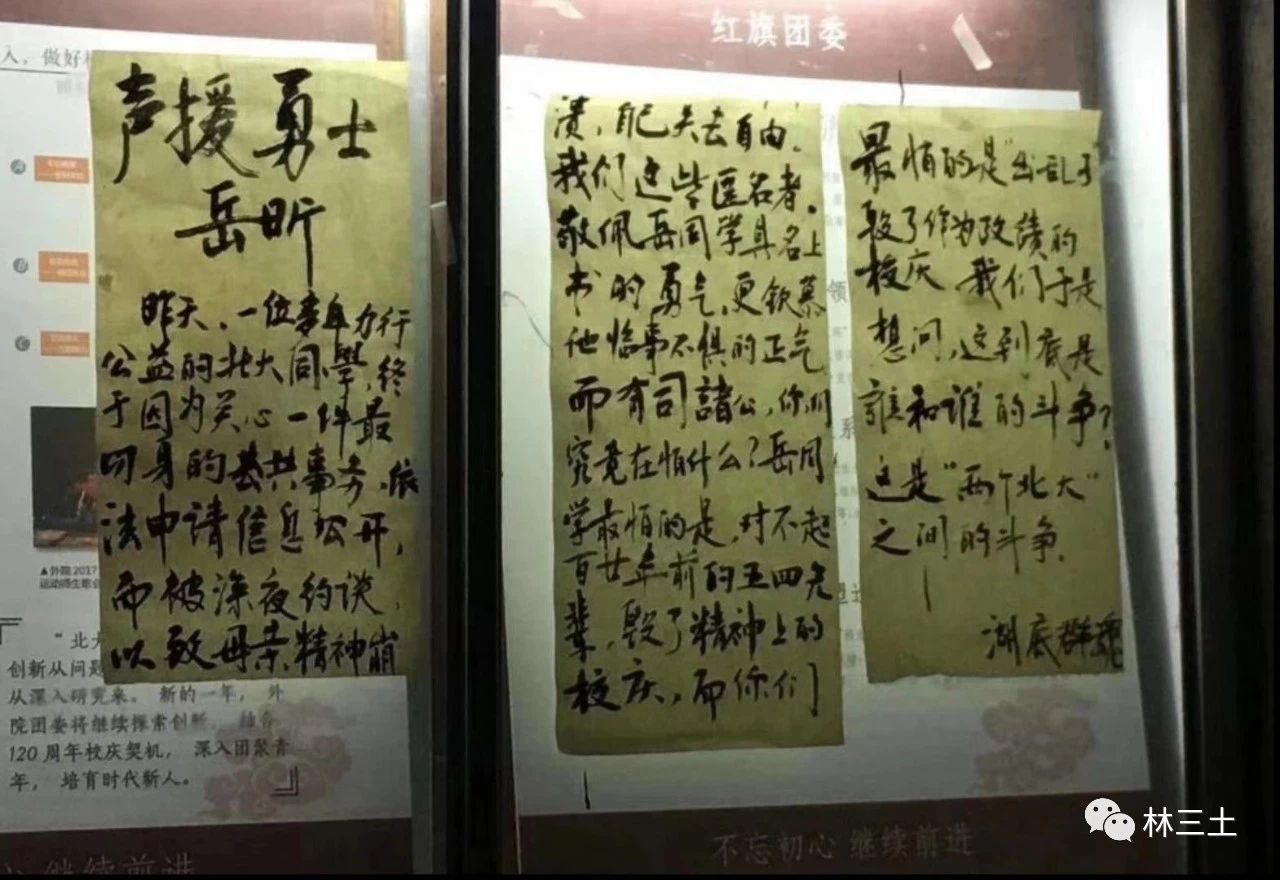 入，做好
声援勇士
岳昕
昨天，一位多年力行
公益的北大同學，终
于因为关心一件最
切身的公共事务，依
法申请信息公开，
而被深夜约谈，
以致母亲精神崩
A
B
C
▲外院2017
运动师生歌会
“北大
创新从问题
从深入研究来。 新的一年， 外
院团委将继续探索创新，
120周年校庆契机， 深入团聚青
年， 培育时代新人。
继续前进
红旗团委
溃，自己失去自由。
我们这些匿名者，
敬佩岳同学具名上
书的勇气，更钦慕
他临事不惧的正气
而有司諸公，你们
究竟在怕什么？岳同
学最怕的是，对不起
百廿年前的五四先
辈，毁了精神上的
校庆，而你们
最怕的是“出乱子”
毁了作为政绩的
校庆 我们于是
想问，这到底是
谁和谁的斗争？
这是“两个北大”
之间的斗争。
湖底群魂
不忘初心 继续前进
林三土